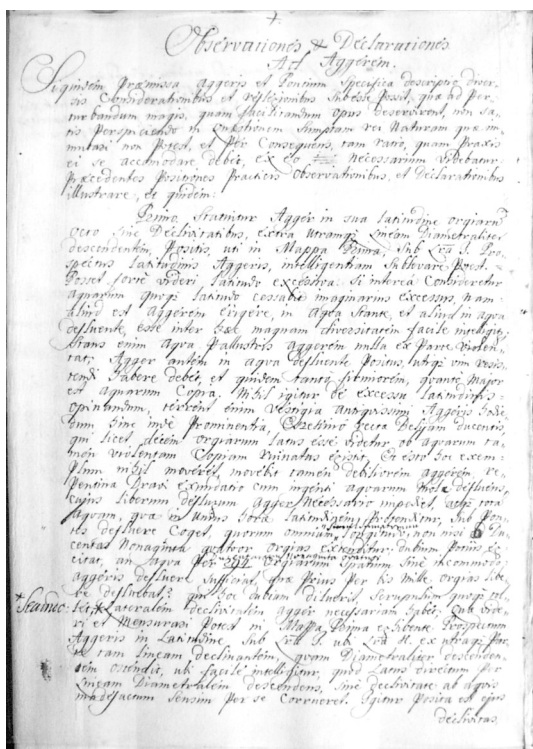 Observationes & Declarationes
Ad Aggerem.
Siquidem præmissa Aggeris et Pontium Specifica descriptio diver-
sis Considerationibus et reflexionibus subesse possit, quæ ad Per-
turbandum magis, quam facilitandum opus deservirent, non sa-
tis Perspiciendo in quæstionem sumptam rei Naturam quæ im-
mutari non Potest, et Per Consequens, tam ratio, quam Praxis
ei se accomodare debet, ex eo necessarium videbatur
Præcedentes Positiones Practicis Observationibus, et Declarationibus
illustrare, et quidem:
Primo, Statuitur Agger in sua latitudine orgiarum
octo sine Declivitatibus, extra utramque Lineam Diametraliter
descendentem, Positis, uti in Mappa Prima, Sub Lra I. Pro-
spectus latitudinis Aggeris, intelligentiam Sublevare Potest.
Posset forte videri latitudo excessiva: Si interea Consideretur
aquarum quoque latitudo cessabit magnarum excessus, nam
aliud est aggerem erigere, in aqua stante, et aliud in aqua
defluente, esse inter hæc magnam diversitatem facile intelligitur
Stans enim aqua Pallustris aggerem nulla ex Parte violen-
tat; Agger autem in aqua defluente Positus, utique vim resis-
tendi habere debet, et quidem tanto firmiorem, quanto major
est aquarum Copia, Nihil igitur de excessu latitudinis
opinandum, terrent enim vestigia antiquissimi Aggeris hodie-
dum sine inde Prominentia, recta
qui licet, decem orgiarum latus esse videtur, ob aquarum ta-
men violentam Copiam ruinatus existit, Et esto hoc exem-
plum nihil moveret, movebit tamen debiliorem aggerem, re-
pentina Dravi exundatio cum ingenti aquarum mole defluens,
cujus liberum defluxum agger Necessario impedit, atque tota
aquam, quæ in unius hora latitudinem Protenditur, sub Pon-
tes defluere Coget, quorum omnium longitudo, non nisi du-
centas Nonaginta quatuor orgias extenditur: dubium Potius ex-
citat, an aqua Per orgiarum Spatium sine incommodo
aggeris defluere sufficiat, quæ Prius Per bis Mille orgias libe-
re defluebat? qui hoc dubium diluerit, scrupulum quoque tol-
let, Lateralem declivitatem agger necessariam habet; Quæ vide-
ri et Mensurari Potest in Mappa Prima exhibente Prospectum
Aggeris in Latitudine Sub Lra I. ubi Lra H. ex utraque Par-
te tam lineam declinantem, quam Diametraliter descenden-
tem ostendit, ubi facile intelligitur, quod Latus directum per
Lineam Diametralem descendens, sine declivitate ab aquis
madefactum Sensim Per se Corrueret. Igitur Posita est ejus
declivitas.